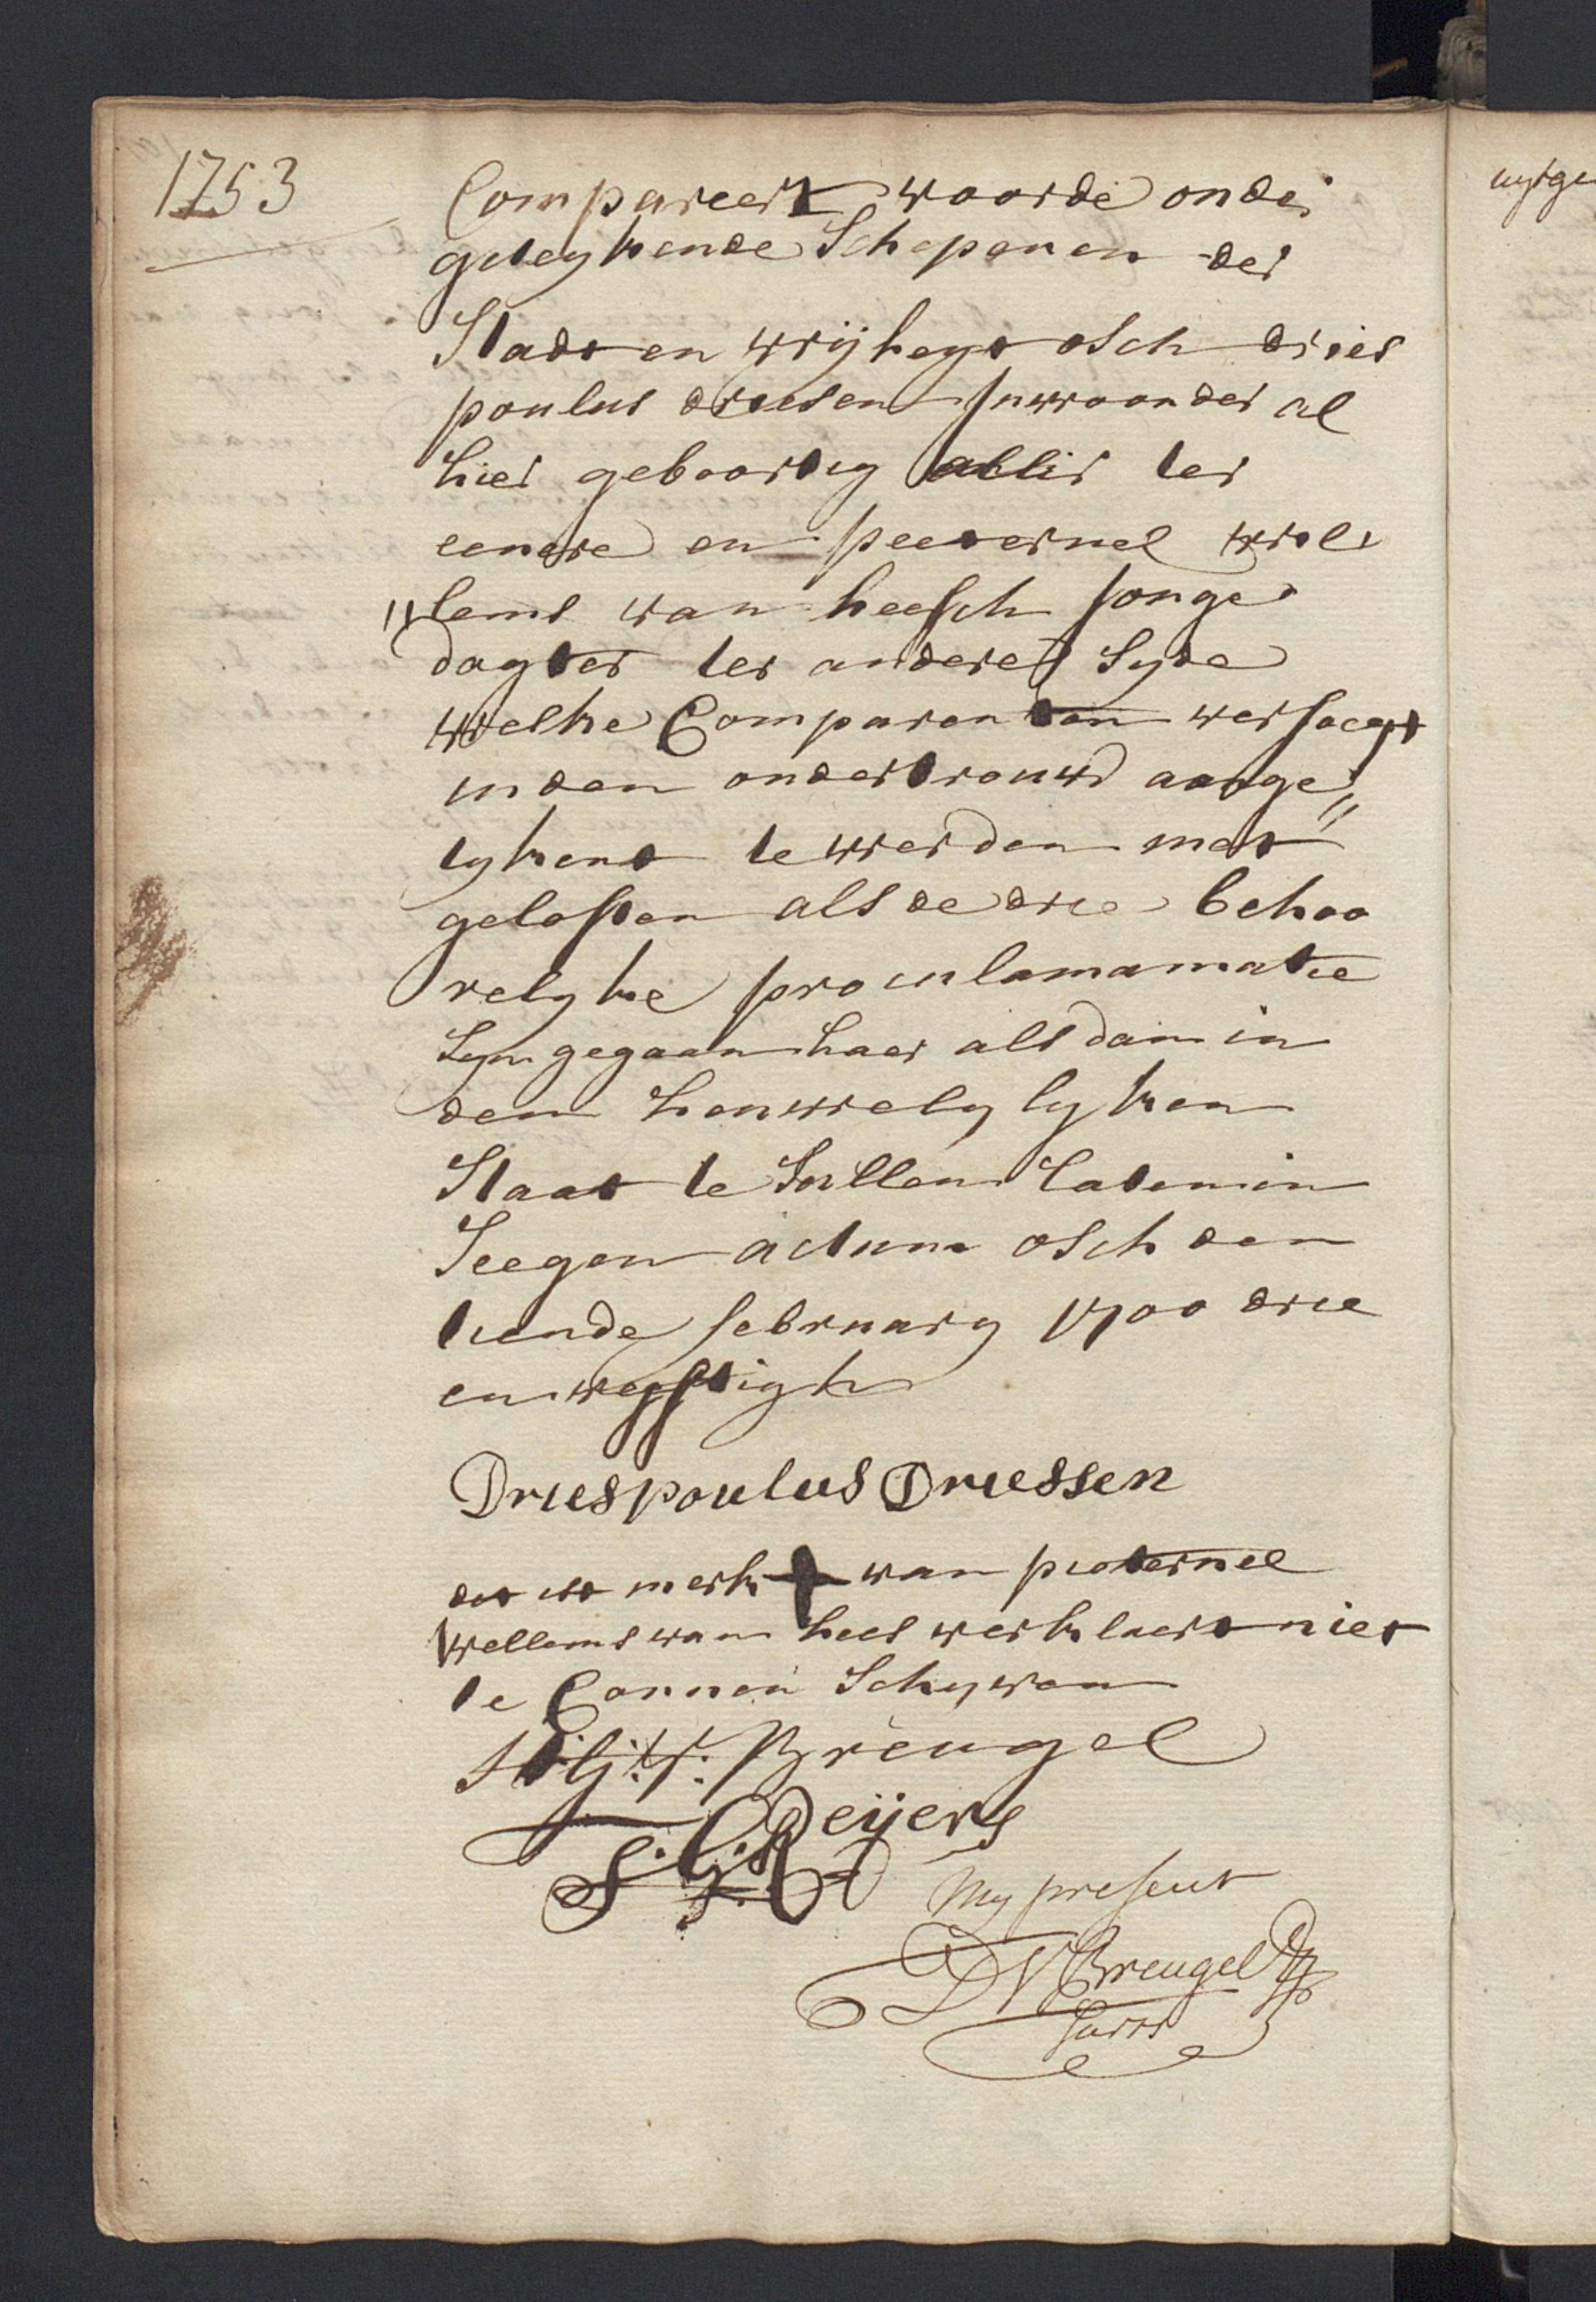 1753
Compareert voorde onder
geteykende Schepenen der
Stadt en vrijheyt osch dries
poulus driesen inwoonder al
hier geboortig allir ter
eenere en peeternel wil
"lems van heesch jonge
dogter ter anderer Syde
welke Comparanten versoegt
inden ondertrouwd aange"
tykent te werden met
geloften als de drie behoo
relyke proculamamatie
Syn gegaan haer als dan in
den houwelylyken
Staat te Sullen laten in
Seegen actum osch den
tiende february 1700 drie
en vyftigh
Dries poulus Driessen
dit ist merk van pieternel
Wellems van hees verklaert niet
te Connen Schryven
Breugel
S: G: Reijers
My present
D V Breugel
uytge